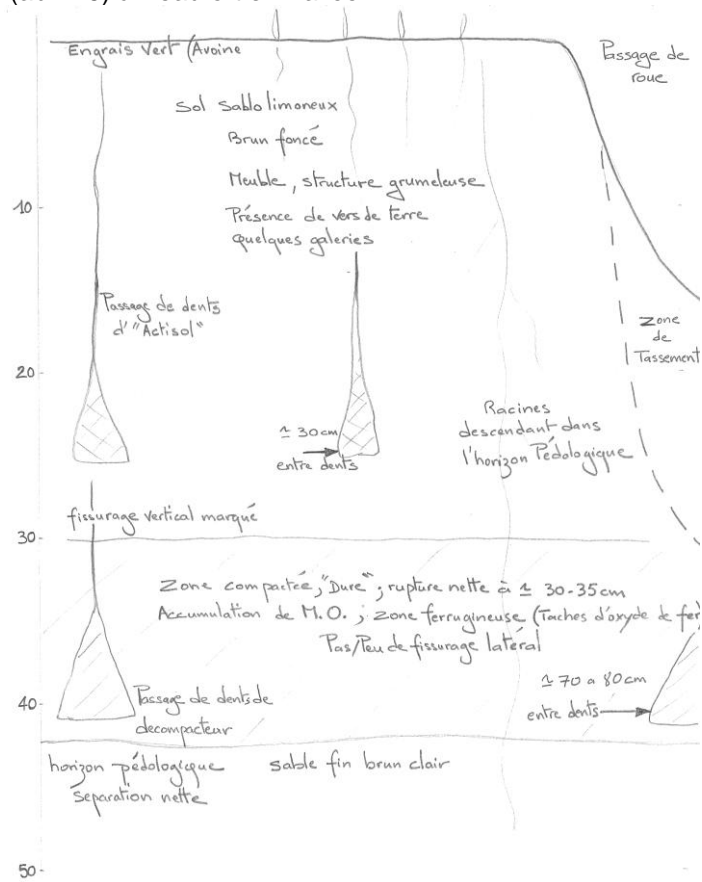 Engrais Vert (Avoine
Passage de
roue
Sol sablo limoneux
Brun foncé
Meuble, structure grumeleuse
Présence de vers de terre
quelques galeries
10
Passage de dents
d'"Actisol"
Zone
de
Tassement
20
≃ 30cm
entre dents
Racines
descendant dans
l'horizon Pédologique
fissurage vertical marqué
30
Zone compactée, "Dure"; rupture nette à ≃ 30-35cm
Accumulation de M.O. ; Zone ferrugineuse (Taches d'oxyde de fer
Pas/Peu de fissurage latéral
≃ 70 a 80cm
entre dents
40
Passage de dents de
decompacteur
horizon pédologique
séparation nette
sable fin brun clair
50